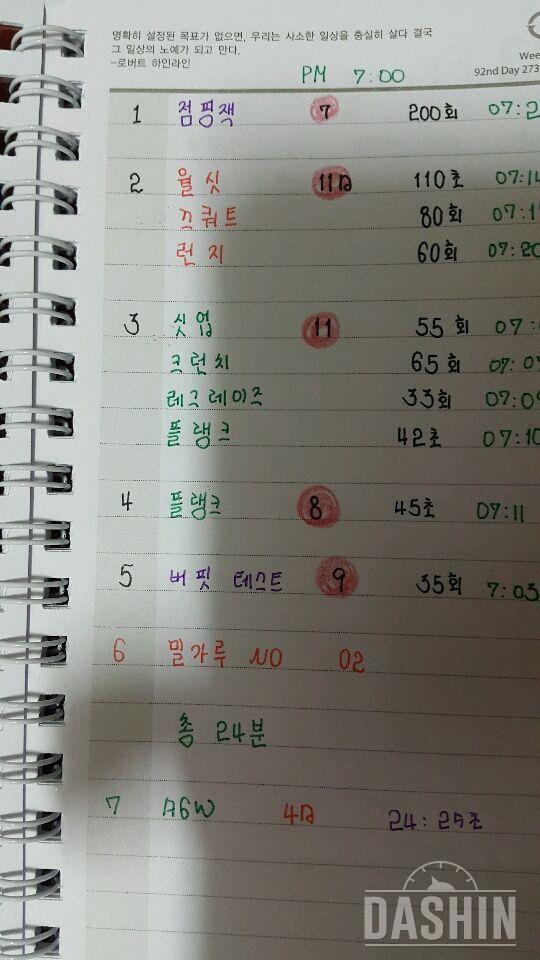 명확히 설정된 목표가 없으면, 우리는 사소한 일상을 충실히 살다 결국
그 일상의 노예가 되고 만다.
~로버트 하인라인
Wee
92nd Day 273
PM 7:00
1 점핑잭 7 200회 07:2
2 월싯 11D 110초 07:14
스쿼트 80회 07:1
런지 60회 07:20
3 싯업 11 55회 07:
크런치 65회 07:0
레그레이즈 33회 07:09
플랭크 42초 07:10
4 플랭크 8 45초 07:11
5 버핏 테스트 9 35회 7:03
6 밀가루 NO 02
총 24분
7 A6W 4D 24:25초
DASHIN